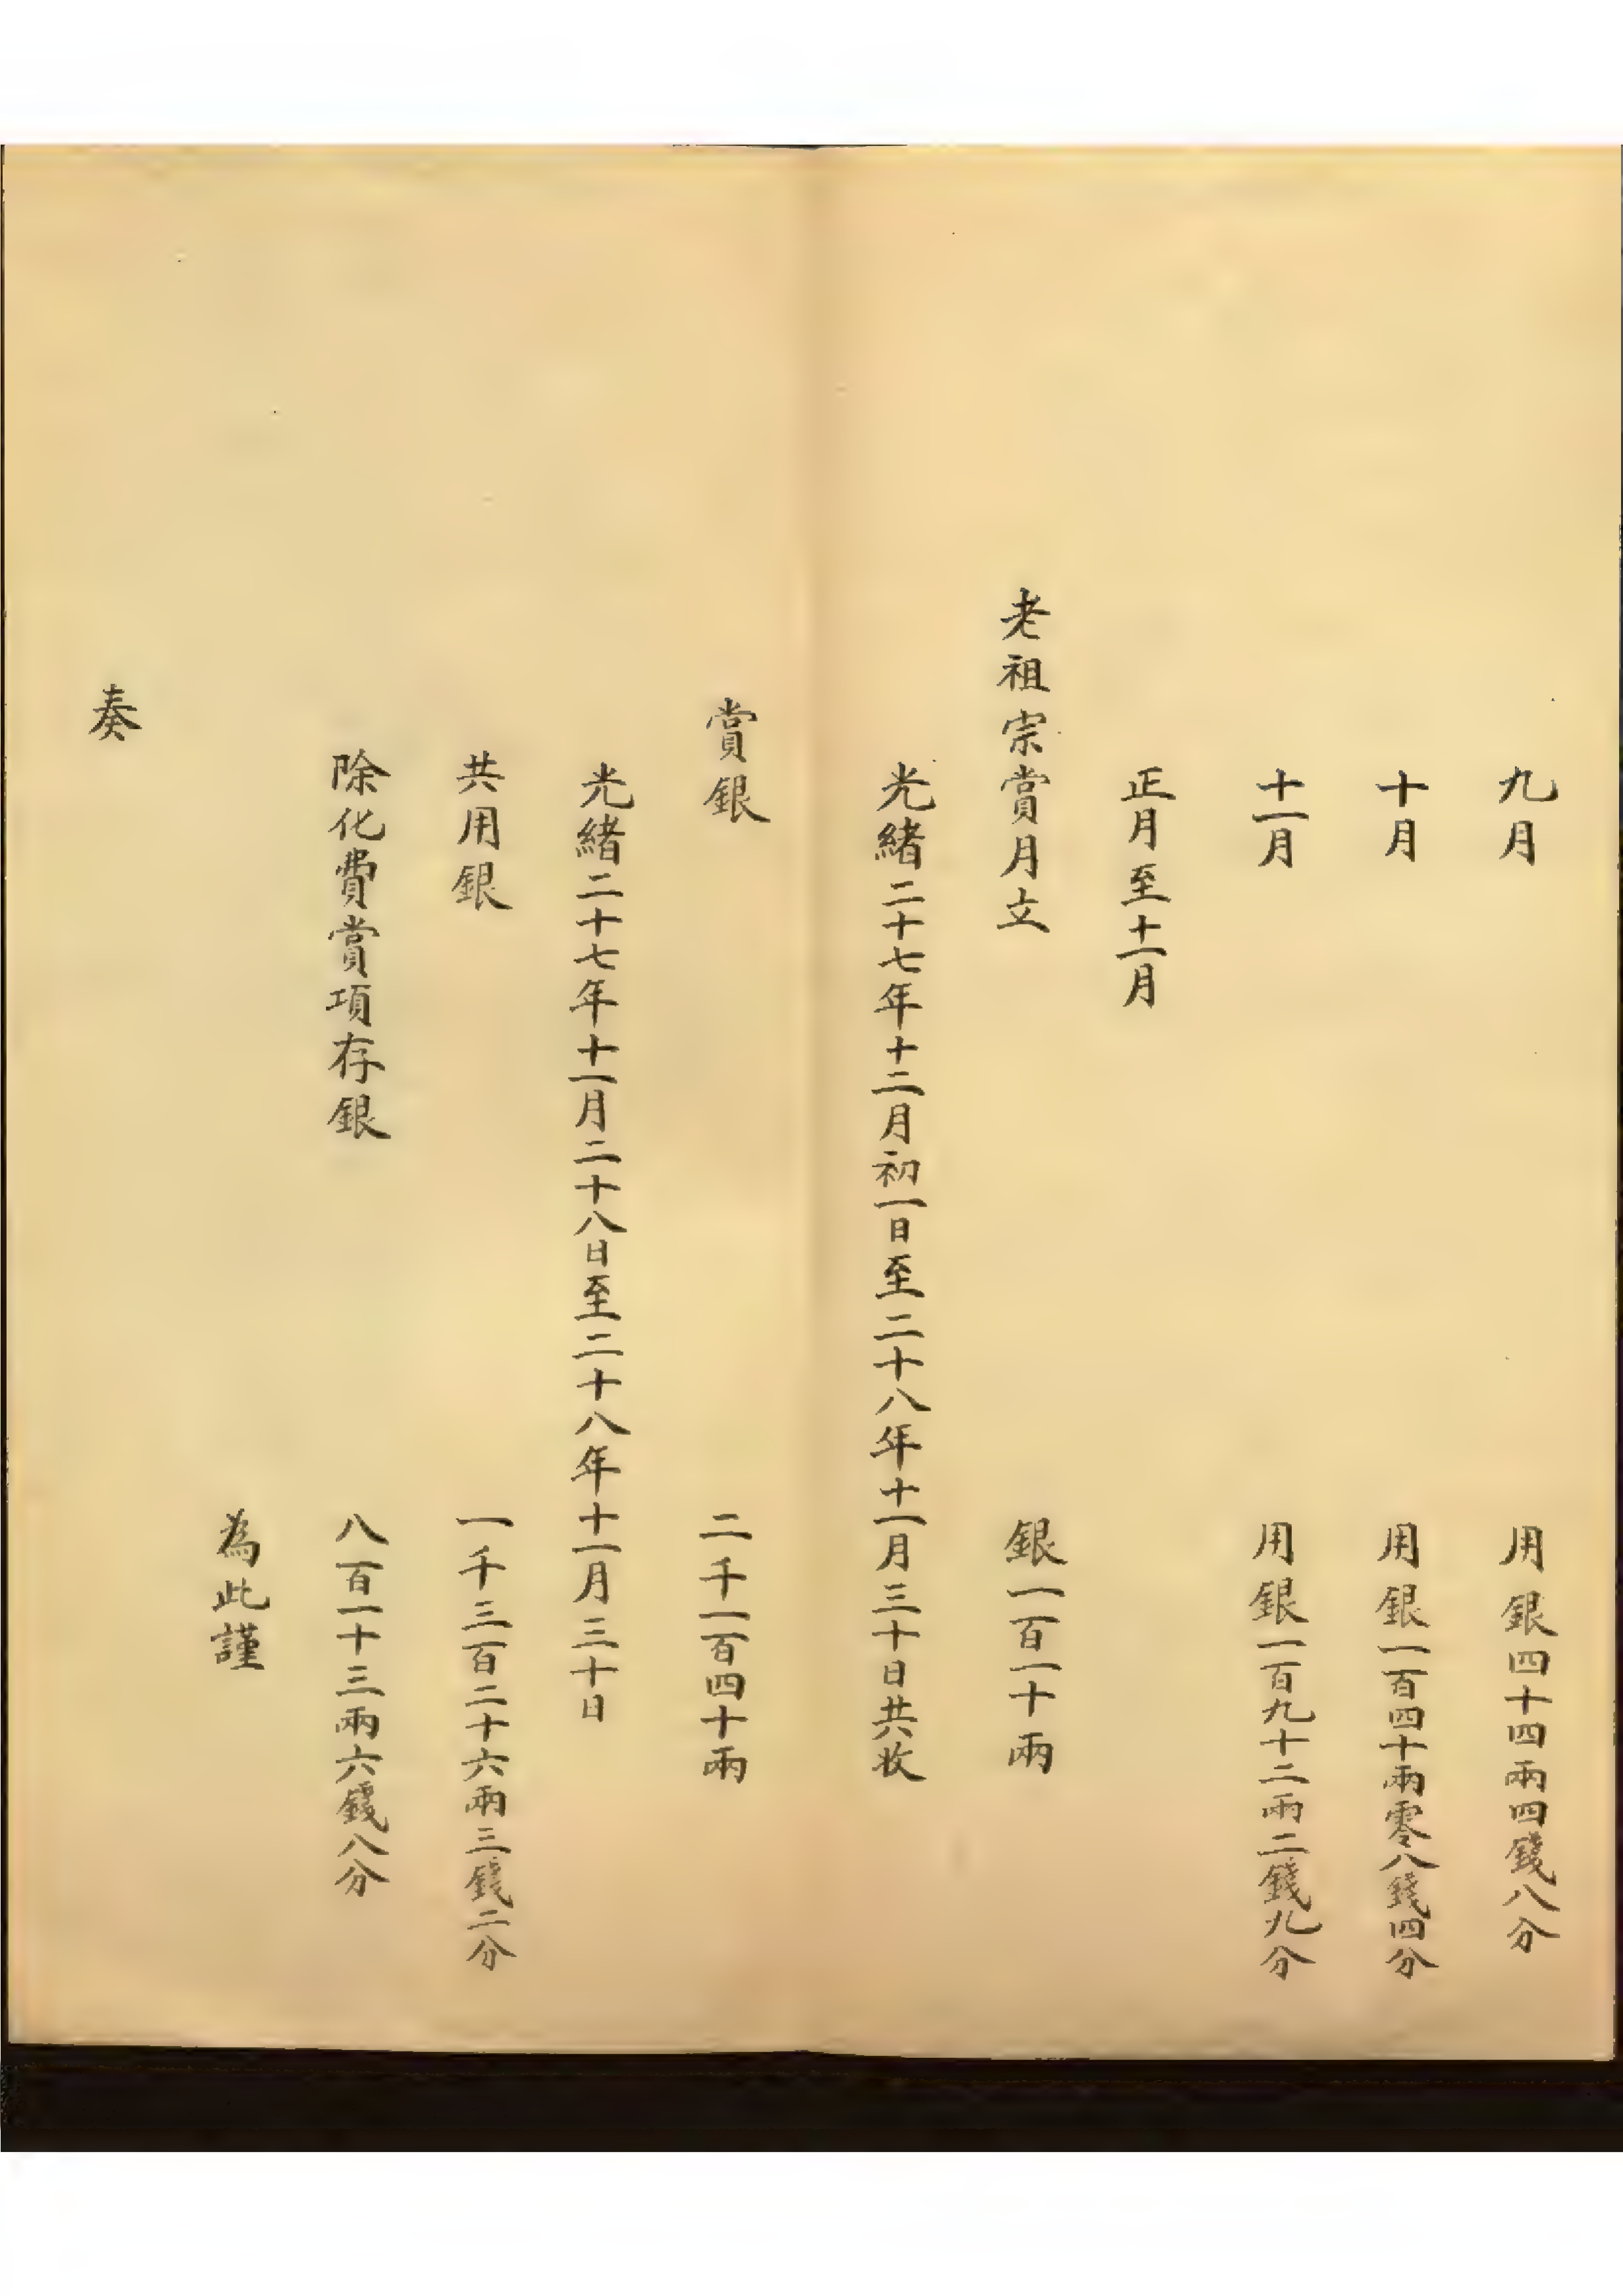 九月　用銀四十四兩四錢八分
十月　用銀一百四十兩零八錢四分
十一月　用銀一百九十二兩二錢九分
正月至十一月
老祖宗賞月立　銀一百一十兩
光緒二十七年十二月初一日至二十八年十一月三十日共收
賞銀　二千一百四十兩
光緒二十七年十一月二十八日至二十八年十一月三十日
共用銀　一千三百二十六兩三錢二分
除化費賞項存銀　八百一十三兩六錢八分
為此謹
奏